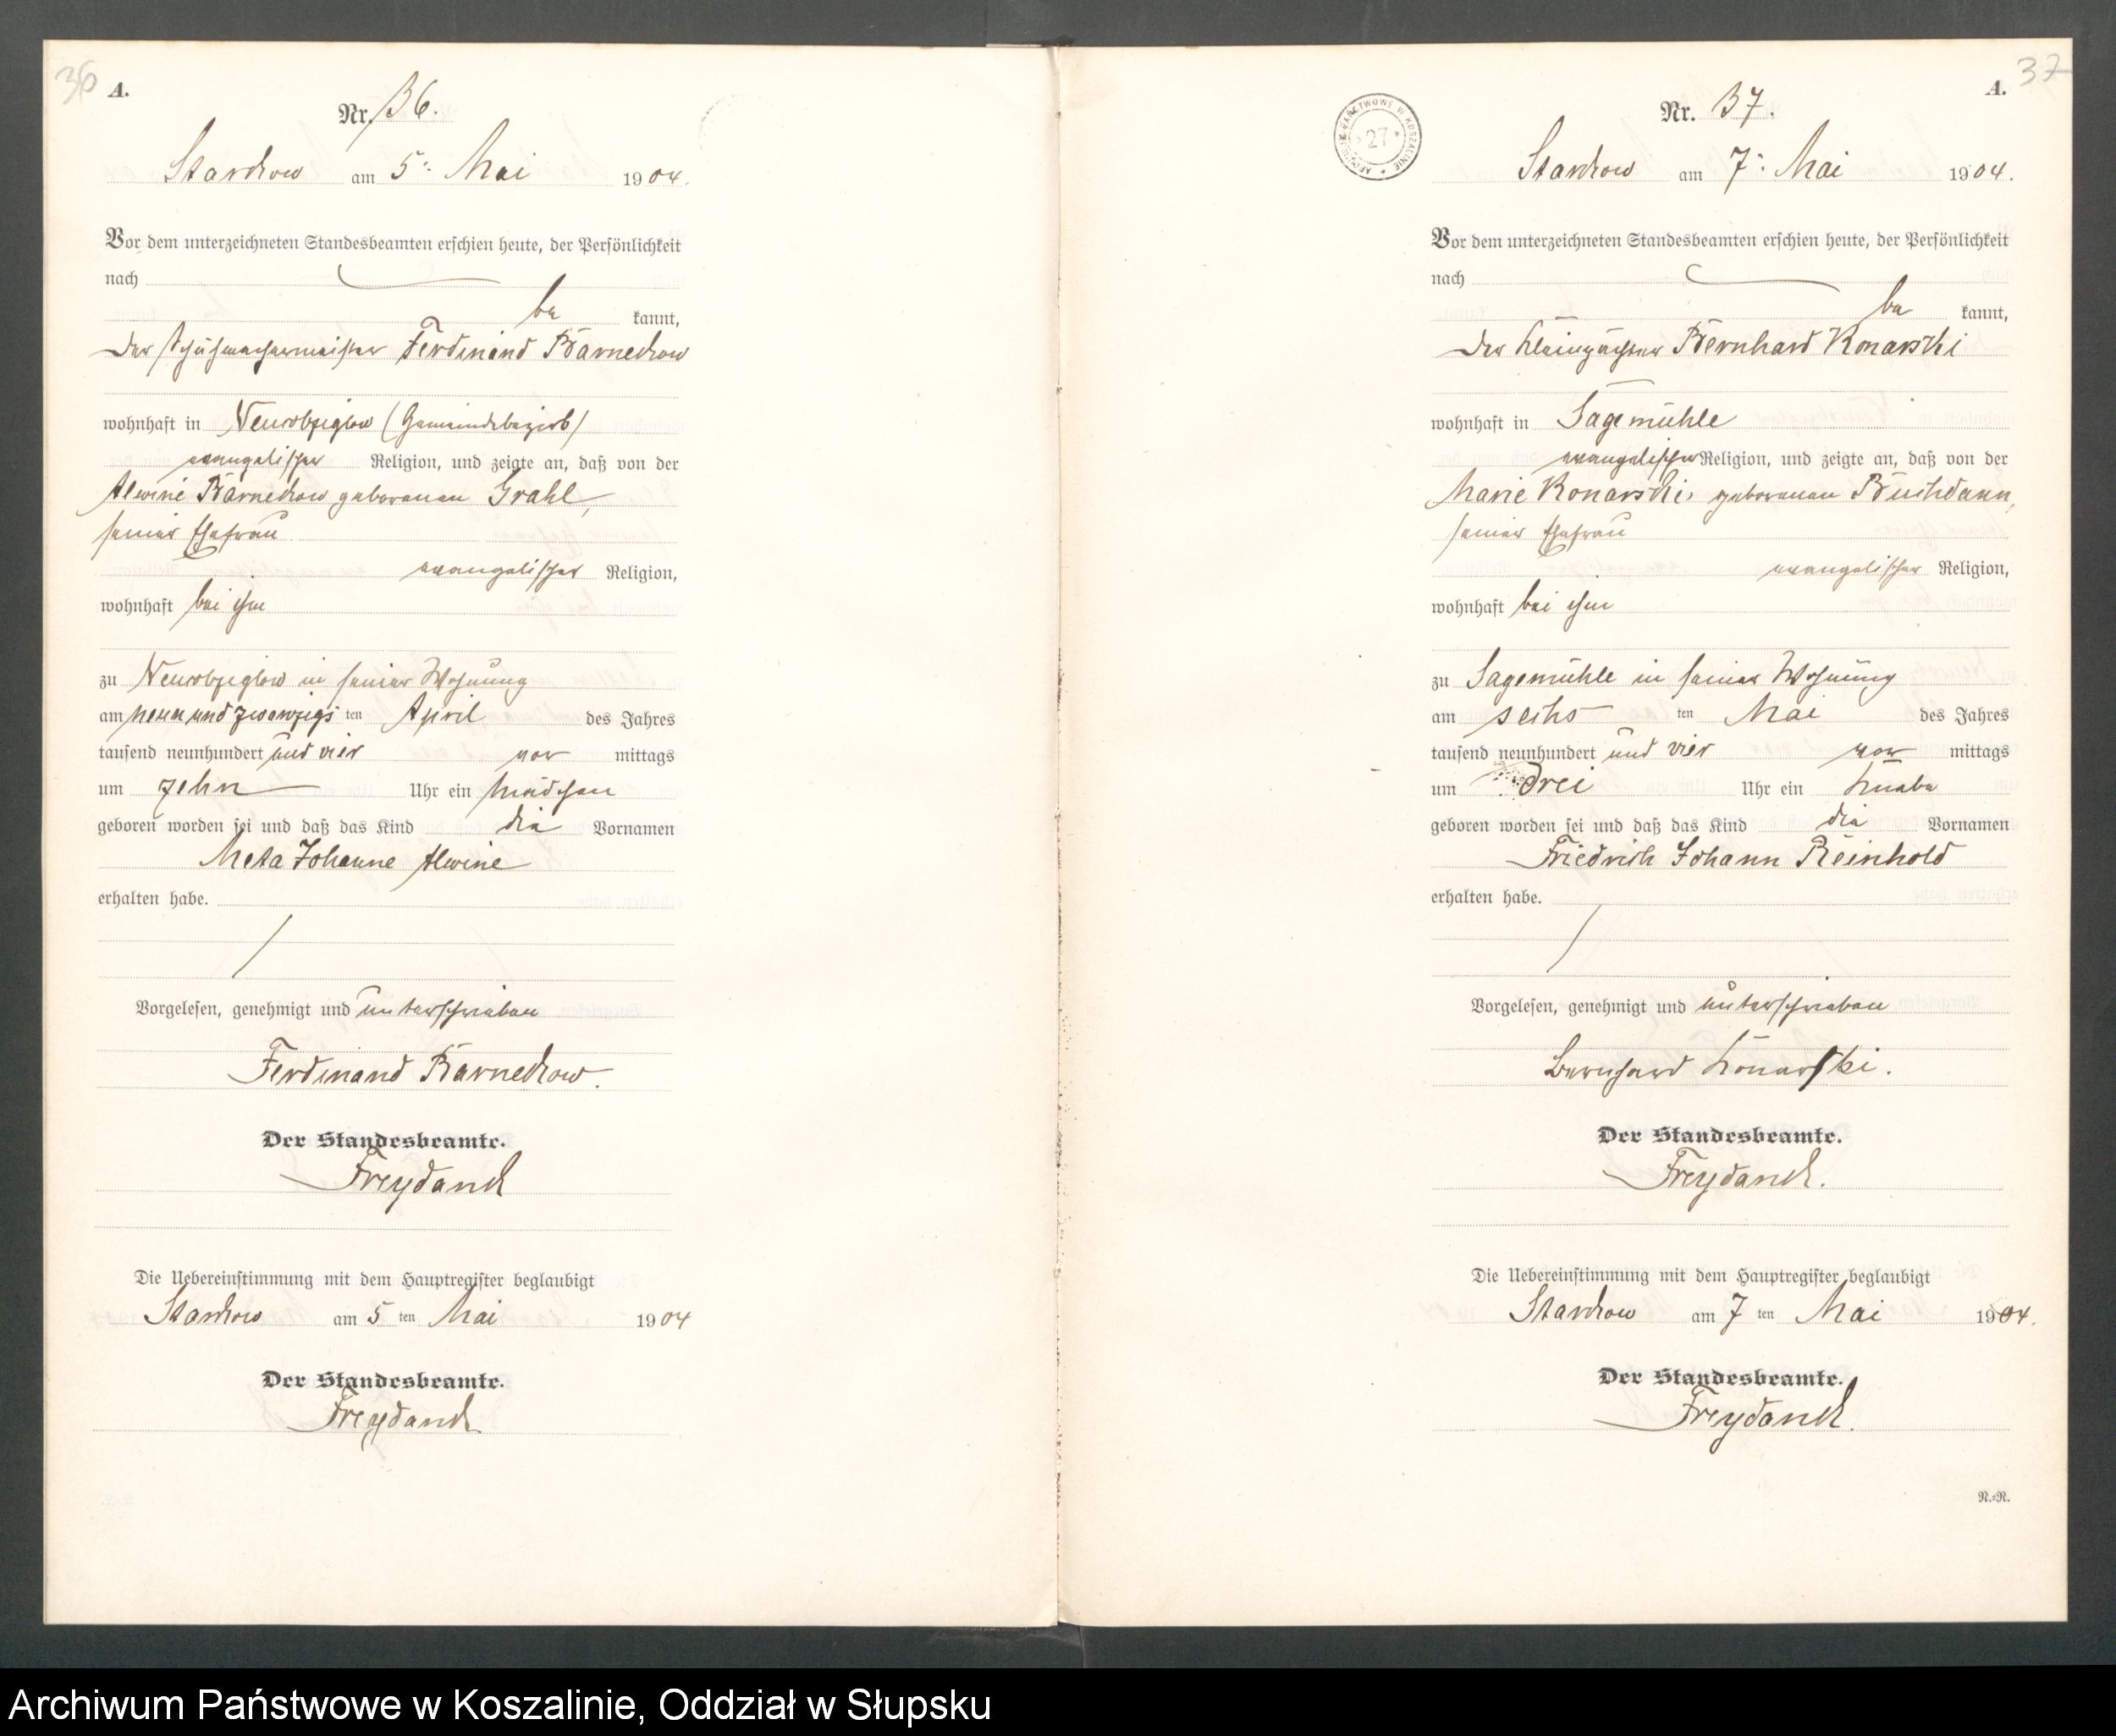 36
A.
Nr. 36.
Starckow am 5: Mai 1904.
Vor dem unterzeichneten Standesbeamten erschien heute, der Persönlichkeit
nach
be kannt,
der Schuhmachermeister Ferdinand Barneckow
wohnhaft in Neukolziglow (Gemeindebezirk)
evangelischer Religion, und zeigte an, daß von der
Alwine Barneckow geborenen Grahl,
seiner Ehefrau
evangelischer Religion,
wohnhaft bei ihm
zu in seiner Wohnung
am neun und zwanzigs ten April des Jahres
tausend neunhundert und vier vor mittags
um zehn Uhr ein Mädchen
geboren worden sei und daß das Kind die Vornamen
Meta Johanne Alwine
erhalten habe.
Vorgelesen, genehmigt und unterschrieben
Ferdinand Barneckow.
Der Standesbeamte.
Freydanck
Die Uebereinstimmung mit dem Hauptregister beglaubigt
Starckow am 5 ten Mai 1904
Der Standesbeamte.
Freydanck
37
A.
ARCHIWUM PAŃSTWOWE W KOSZALINIE
27
Nr. 37.
Starckow am 7: Mai 1904.
Vor dem unterzeichneten Standesbeamten erschien heute, der Persönlichkeit
nach
be kannt,
der Kleinpächter Bernhard Konarski
wohnhaft in Sagemühle
evangelischer Religion, und zeigte an, daß von der
Marie Konarski, geborenen
seiner Ehefrau
evangelischer Religion,
wohnhaft bei ihm
zu Sagemühle in seiner Wohnung
am sechs ten Mai des Jahres
tausend neunhundert und vier vor mittags
um drei Uhr ein Knabe
geboren worden sei und daß das Kind die Vornamen
Friedrich Johann Reinhold
erhalten habe.
Vorgelesen, genehmigt und unterschrieben
Bernhard Konarski.
Der Standesbeamte.
Freydanck.
Die Uebereinstimmung mit dem Hauptregister beglaubigt
Starckow am 7 ten Mai 1904.
Der Standesbeamte.
Freydanck.
N.=N.
Archiwum Państwowe w Koszalinie, Oddział w Słupsku